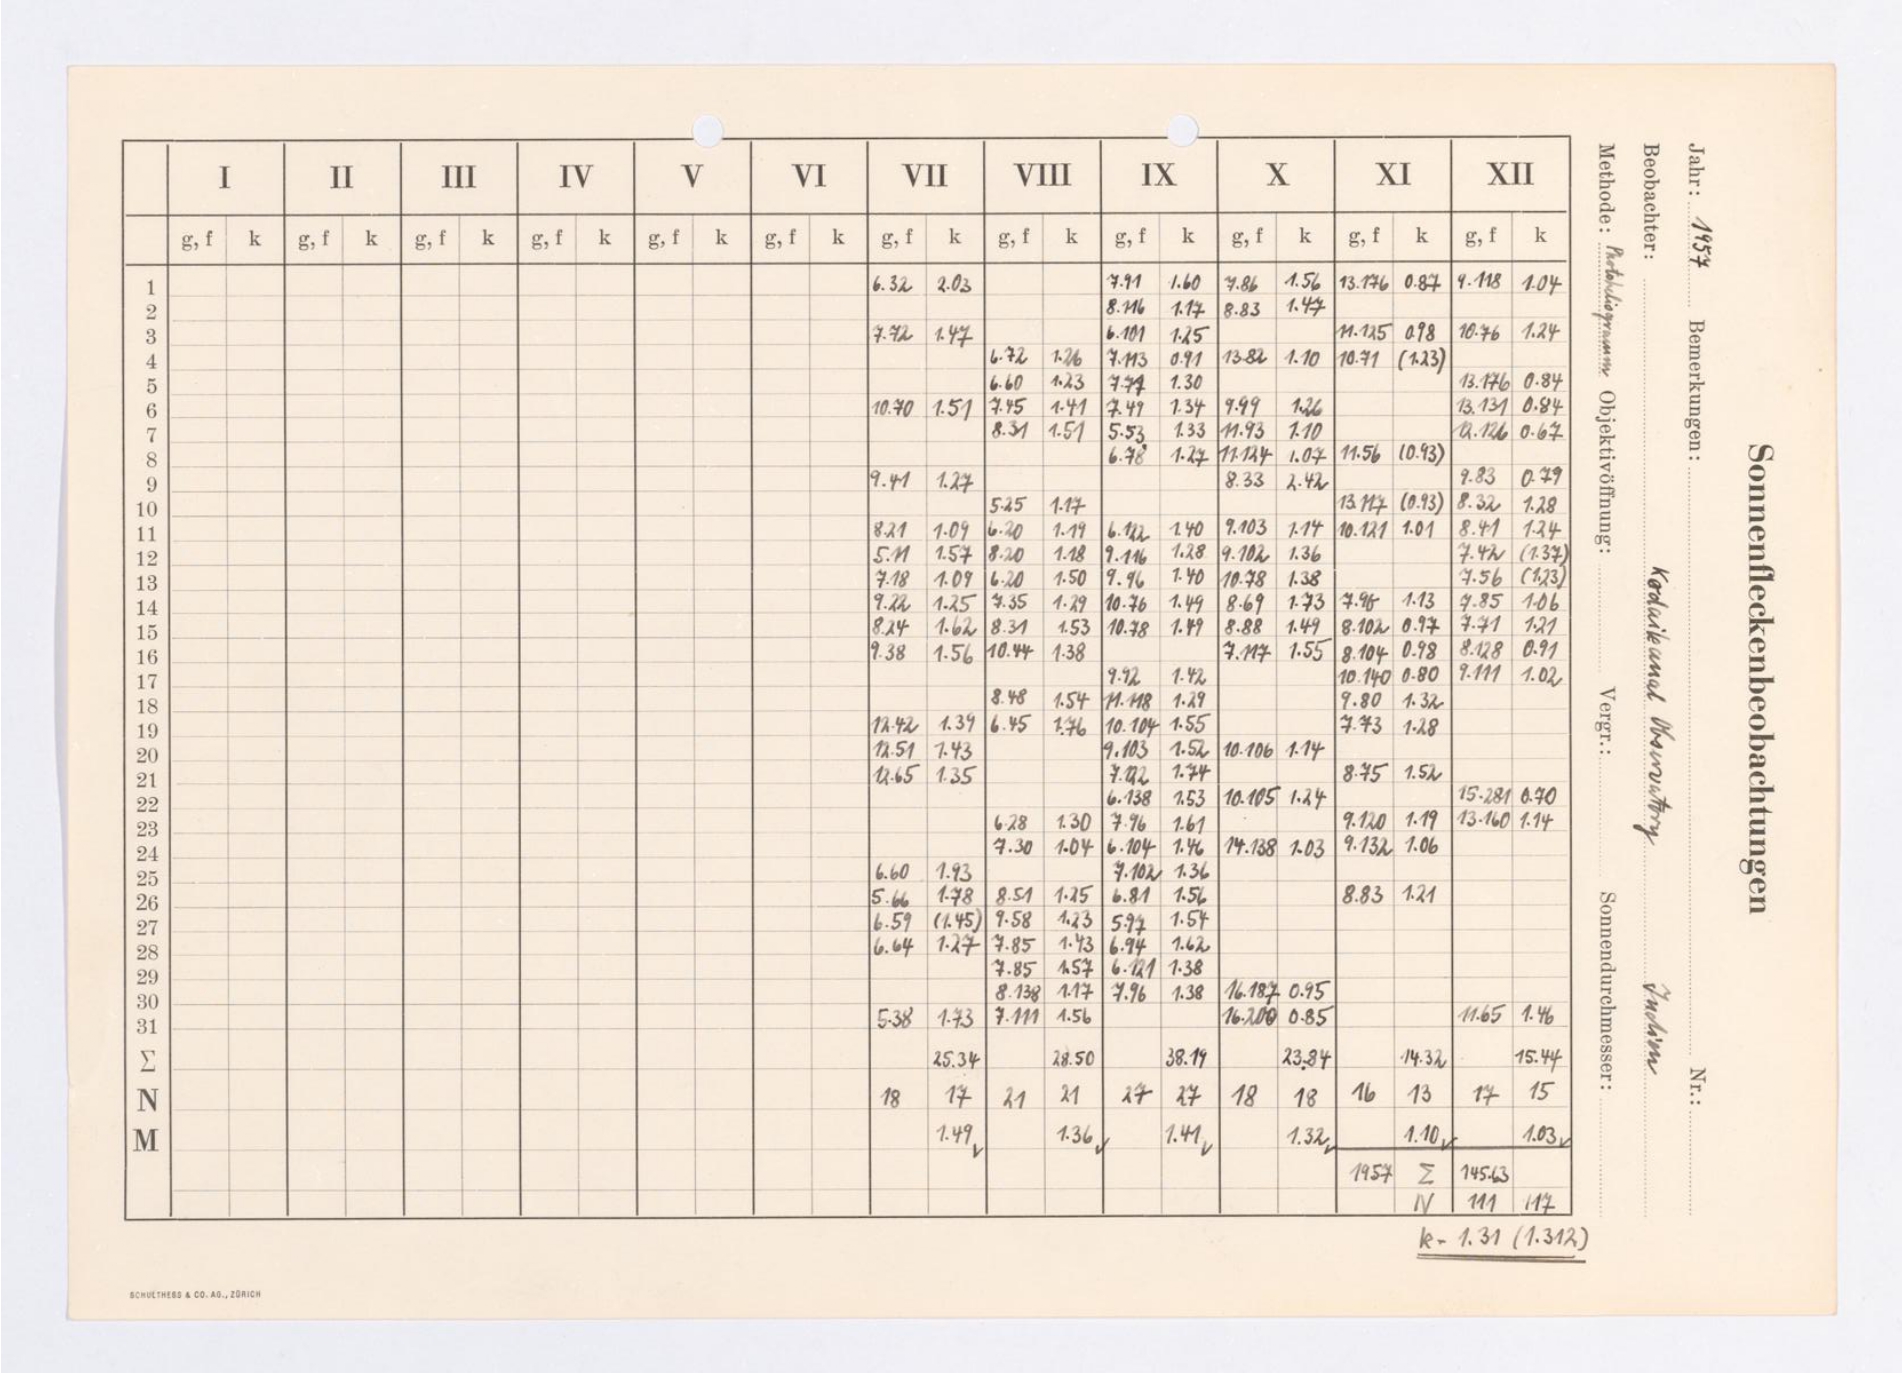 Sonnenfleckenbeobachtungen
Jahr: 1957 Bemerkungen: Nr.:
Beobachter: Kodaikanal Observatory Indien
Methode: Photoheliogramm Objektivöffnung: Vergr.: Sonnendurchmesser:
I II III IV V VI VII VIII IX X XI XII
g, f k g, f k g, f k g, f k g, f k g, f k g, f k g, f k g, f k g, f k g, f k g, f k
1 6.32 2.03 7.91 1.60 7.86 1.56 13.176 0.87 9.118 1.04
2 8.116 1.17 8.83 1.47
3 7.72 1.47 6.101 1.25 11.125 0.98 10.76 1.24
4 6.72 1.26 7.113 0.91 13.82 1.10 10.71 (1.23)
5 6.60 1.23 7.77 1.30 13.176 0.84
6 10.70 1.51 7.45 1.41 7.49 1.34 9.99 1.26 13.131 0.84
7 8.31 1.51 5.53 1.33 11.93 1.10 12.126 0.67
8 6.78 1.27 11.124 1.07 11.56 (0.93)
9 9.41 1.27 8.33 2.42 9.83 0.79
10 5.25 1.17 13.117 (0.93) 8.32 1.28
11 8.21 1.09 6.20 1.19 6.122 1.40 9.103 1.14 10.121 1.01 8.41 1.24
12 5.11 1.57 8.20 1.18 9.116 1.28 9.102 1.36 7.42 (1.37)
13 7.18 1.09 6.20 1.50 9.96 1.40 10.78 1.38 7.56 (1.23)
14 9.22 1.25 7.35 1.29 10.76 1.49 8.69 1.73 1.13 7.85 1.06
15 8.24 1.62 8.31 1.53 10.78 1.49 8.88 1.49 8.102 0.97 7.71 1.21
16 9.38 1.56 10.44 1.38 7.117 1.55 8.104 0.98 8.128 0.91
17 9.92 1.42 10.140 0.80 9.111 1.02
18 8.48 1.54 11.118 1.29 9.80 1.32
19 12.42 1.39 6.45 1.76 10.104 1.55 7.73 1.28
20 12.51 1.43 9.103 1.52 10.106 1.14
21 12.65 1.35 7.122 1.74 8.75 1.52
22 6.138 1.53 10.105 1.24 15.281 0.70
23 6.28 1.30 7.96 1.61 9.120 1.19 13.160 1.14
24 7.30 1.04 6.104 1.46 14.138 1.03 9.132 1.06
25 6.60 1.93 7.102 1.36
26 5.66 1.78 8.51 1.25 6.81 1.56 8.83 1.21
27 6.59 (1.45) 9.58 1.23 5.97 1.54
28 6.64 1.27 7.85 1.43 6.94 1.62
29 7.85 1.57 6.121 1.38
30 8.138 1.17 7.96 1.38 16.187 0.95
31 5.38 1.73 7.111 1.56 16.200 0.85 11.65 1.46
Σ 25.34 28.50 38.19 23.84 14.32 15.44
N 18 17 21 21 27 27 18 18 16 13 17 15
M 1.49 1.36 1.41 1.32 1.10 1.03
1957 Σ 145.63
N 111 117
k = 1.31 (1.312)
SCHULTHESS & CO. AG., ZÜRICH